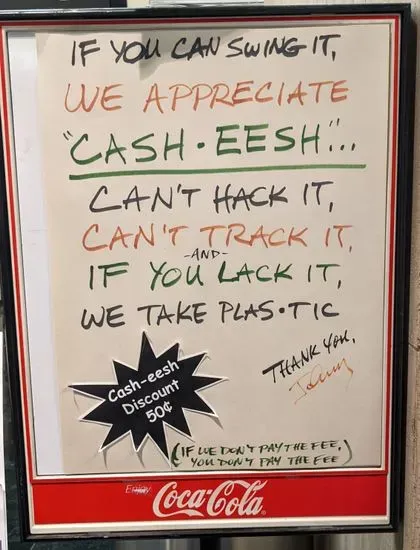 IF YOU CAN SWING IT,
WE APPRECIATE
"CASH•EESH"...
CAN'T HACK IT,
CAN'T TRACK IT,
-AND-
IF YOU LACK IT,
WE TAKE PLAS•TIC
THANK YOU,
Cash-eesh
Discount
50¢
(IF WE DON'T PAY THE FEE,
YOU DON'T PAY THE FEE)
Enjoy
Coca-Cola